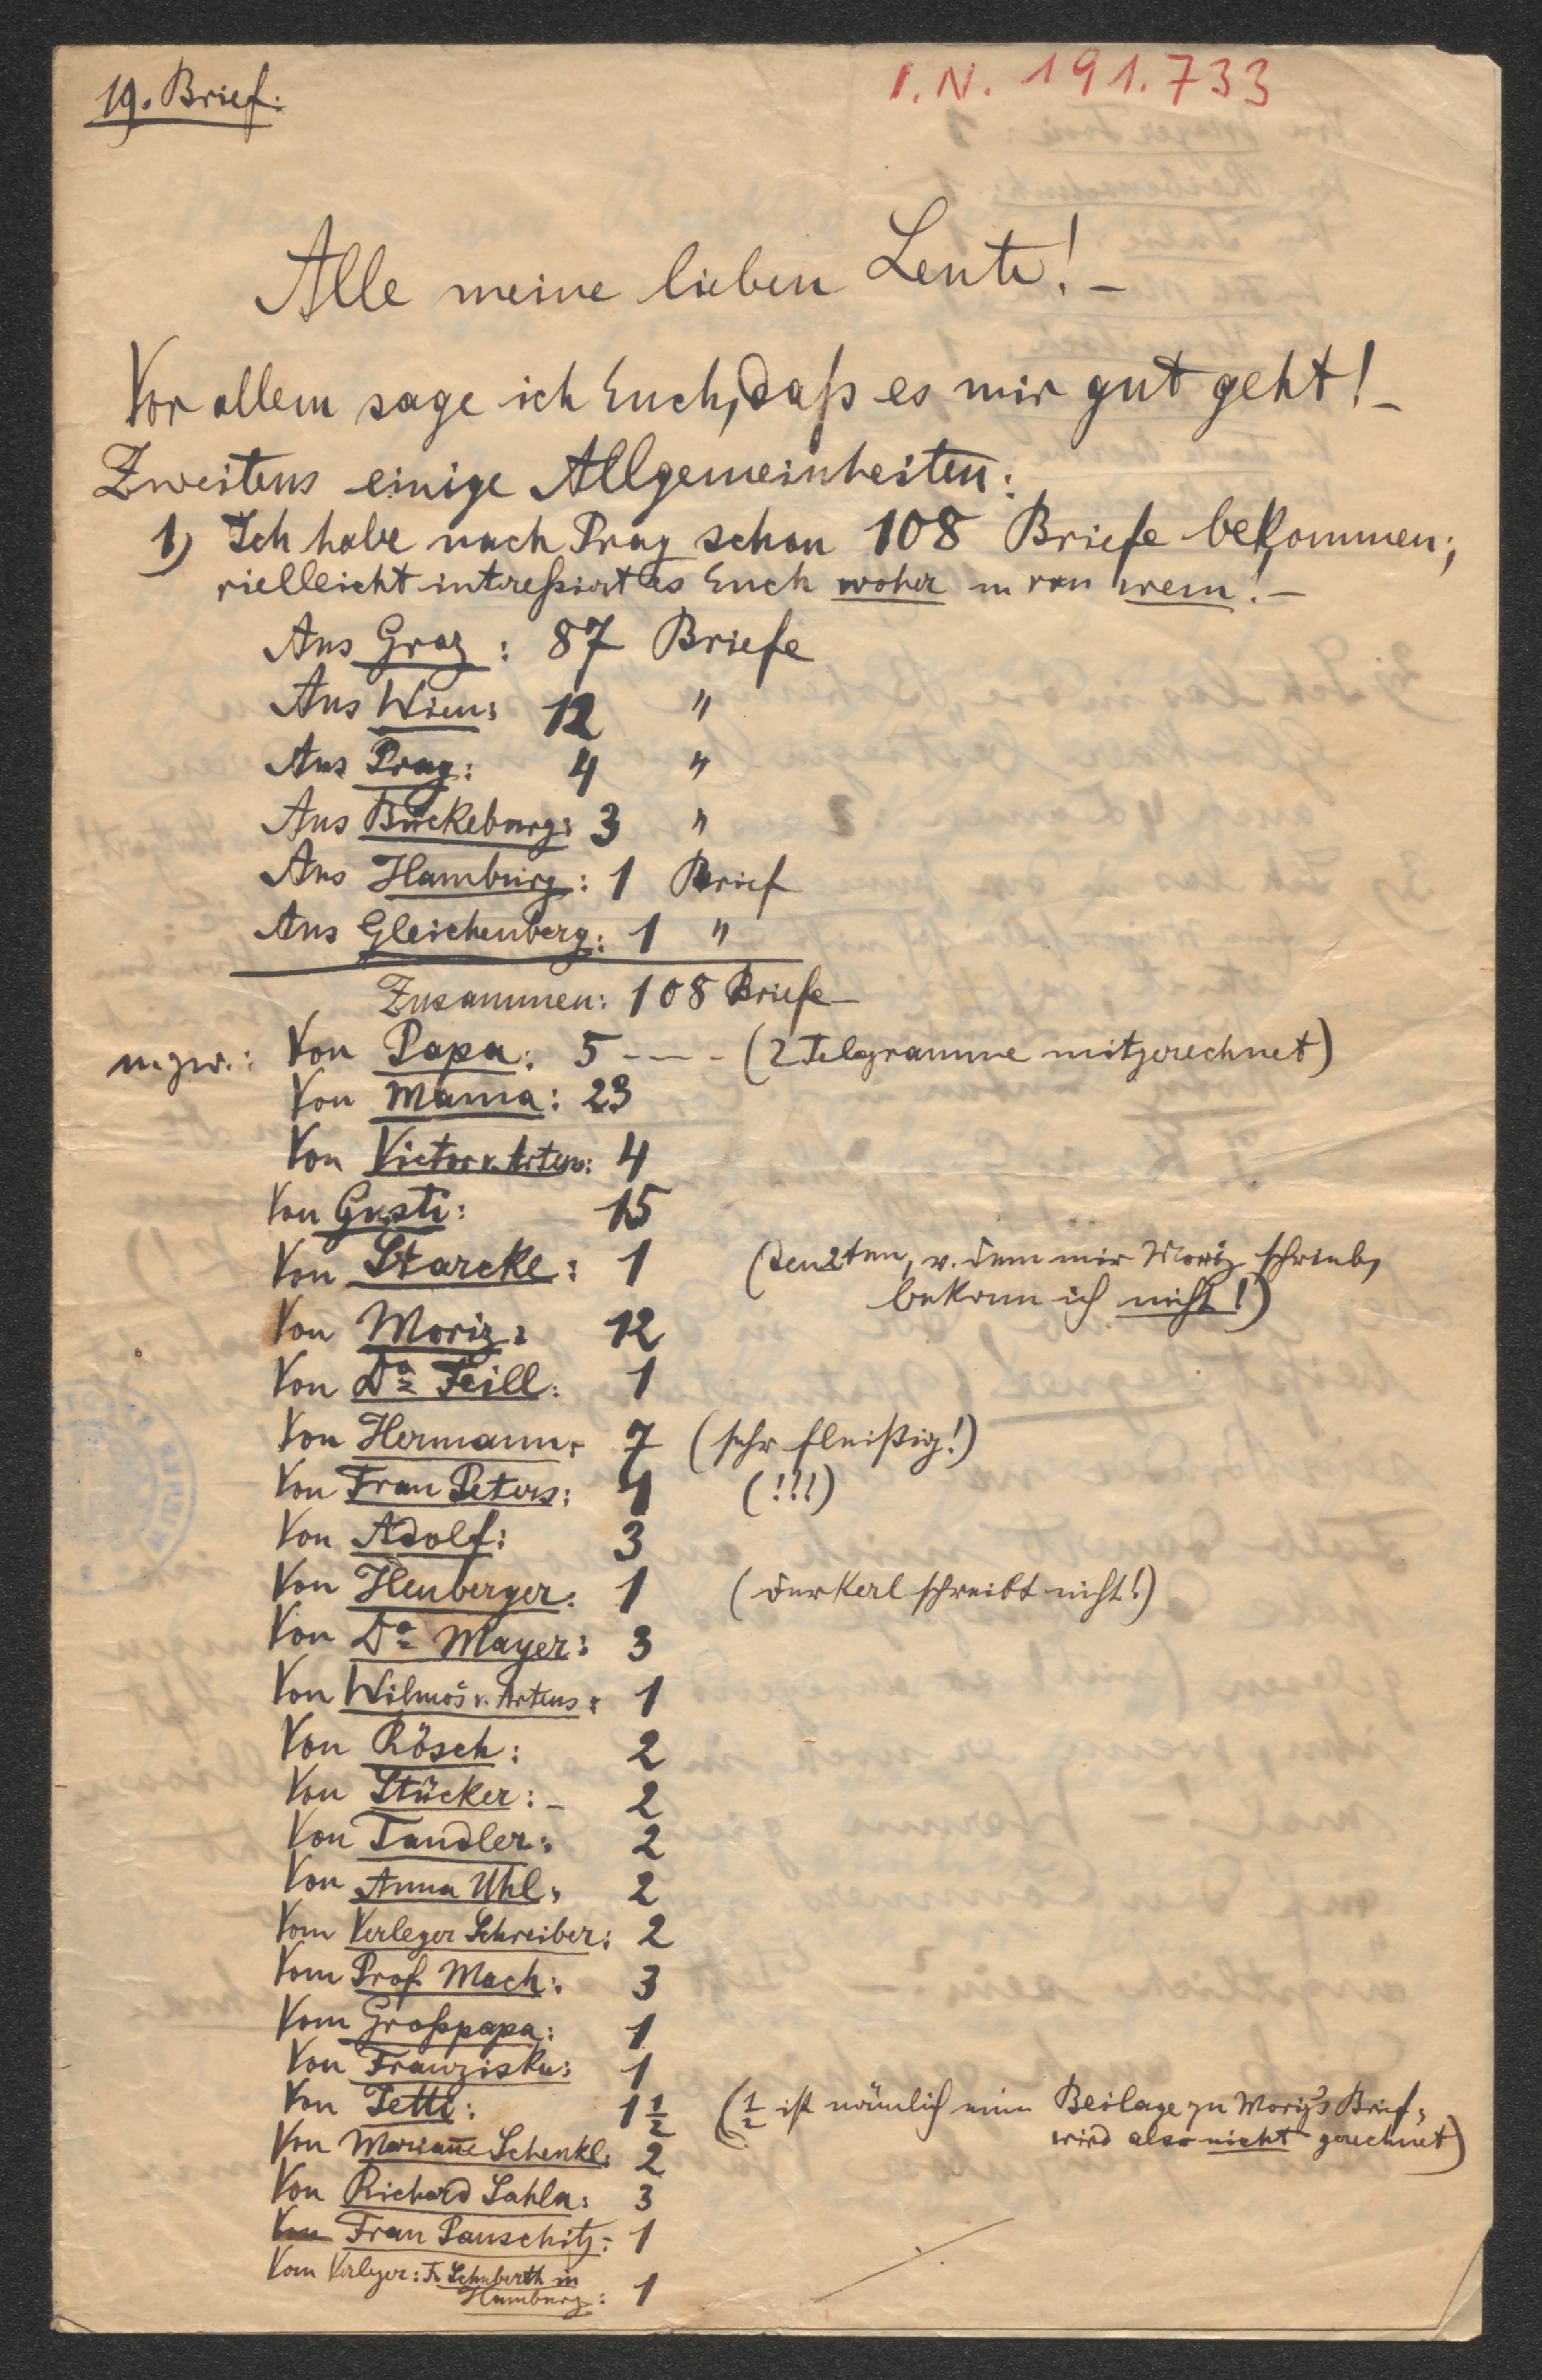 19. Brief.
I.N. 191.733
Alle meine lieben Leute! –
Vor allem sage ich Euch, daß es mir gut geht! –
Zweitens einige Allgemeinheiten:
1) Ich habe nach Prag schon 108 Briefe bekommen;
vielleicht interessirt es Euch woher u von wem! –
Aus Graz: 87 Briefe
Aus Wien: 12 "
Aus Prag: 4 "
Aus Bückeburg: 3 "
Aus Hamburg: 1 Brief
Aus Gleichenberg: 1 "
Zusammen: 108 Briefe –
u. zw.: Von Papa: 5 - - - - (2 Telegramme mitgerechnet)
Von Mama: 23
Von Victor v. Arten: 4
Von Gusti: 15
Von Starcke: 1 (den 2ten, v. dem mir Moriz schrieb,
bekam ich nicht!)
Von Moriz: 12
Von Dr Feill: 1
Von Hermann: 7 (sehr fleißig!)
Von Frau Peters: 4 (!!!)
Von Adolf: 3
Von Heuberger: 1 (der Kerl schreibt nicht!)
Von Dr Mayer: 3
Von Wilmos v. Artens: 1
Von Rösch: 2
Von Stücker: – 2
Von Tandler: 2
Von Anna Uhl: 2
Vom Verleger Schreiber: 2
Vom Prof. Mach: 3
Vom Großpapa: 1
Von Franziska: 1
Von Tetti: 1 1/2 (1/2 ist nämlich eine Beilage zu Moriz's Brief,
wird also nicht gerechnet)
Von Mariañe Schenkl: 2
Von Richard Sahla: 3
Von Frau Pauschitz: 1
Vom Verleger: Fr. Schuberth in
Hamburg: 1